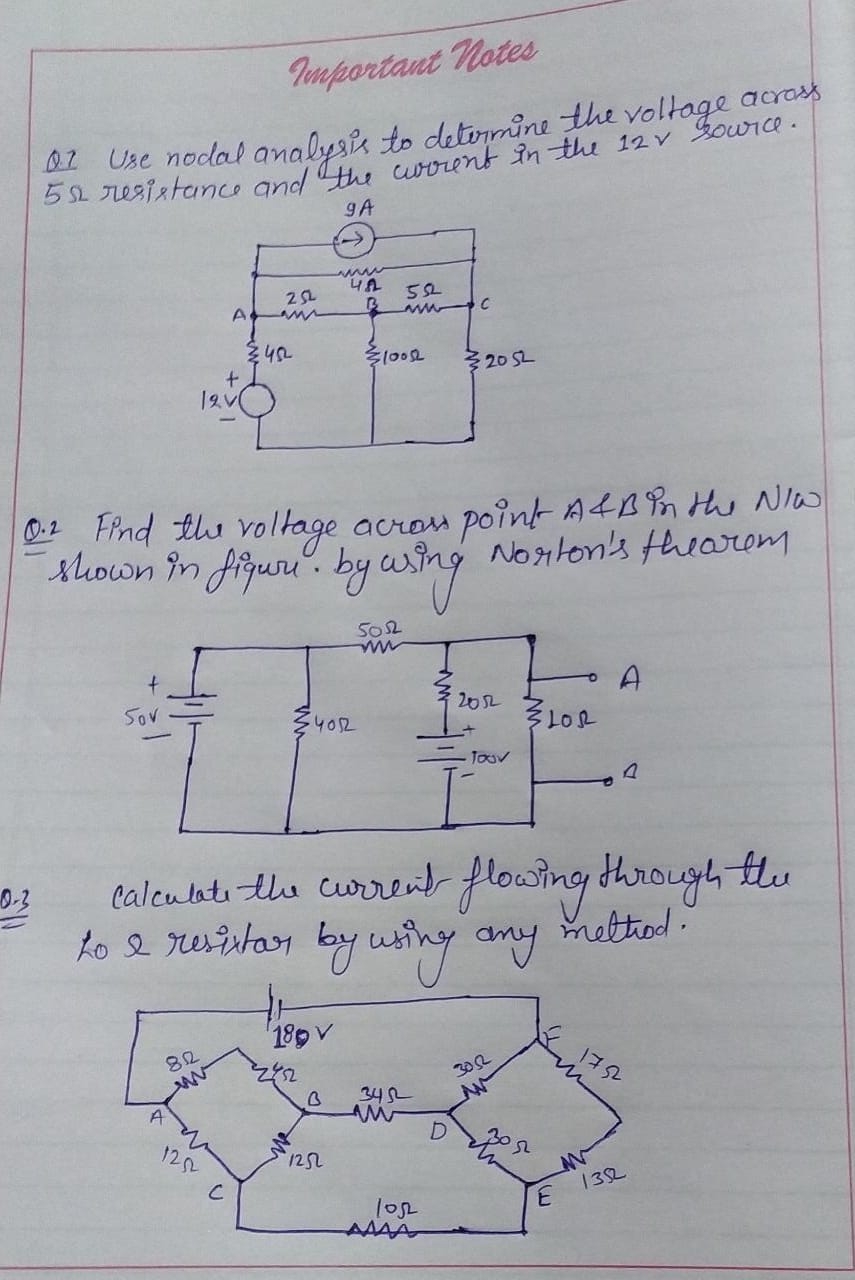 Important Notes
Q.1 Use nodal analysis to determine the voltage across
5Ω resistance and the current in the 12 v source.
9A
4Ω
2Ω B 5Ω
A C
4Ω 100Ω 20Ω
+
12v
-
Q.2 Find the voltage across point A & B in the N/w
shown in figure. by using Norton's thearem
50Ω
+ A
50v 20Ω
- 40Ω + 10Ω
100v
-
Q.3 Calculate the current flowing through the
10 Ω resistor by using any method.
180 V F
8Ω 4Ω 30Ω 17Ω
A B 34Ω D
12Ω 12Ω 30Ω 13Ω
C E
10Ω